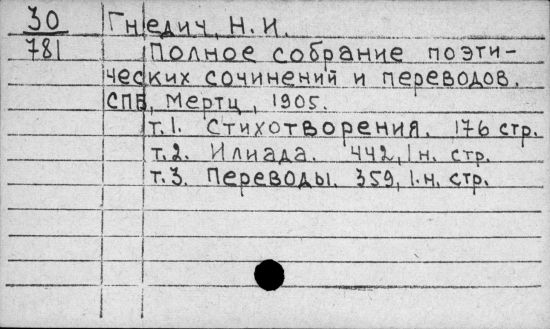 30 Гнедич, Н. И.
781 Полное собрание поэти-
ческих сочинений и переводов.
СПБ, Мертц, 1905.
т.1. Стихотворения. 176 стр.
т.2. Илиада. 442, 1 н. стр.
т.3. Переводы. 359, 1.н. стр.